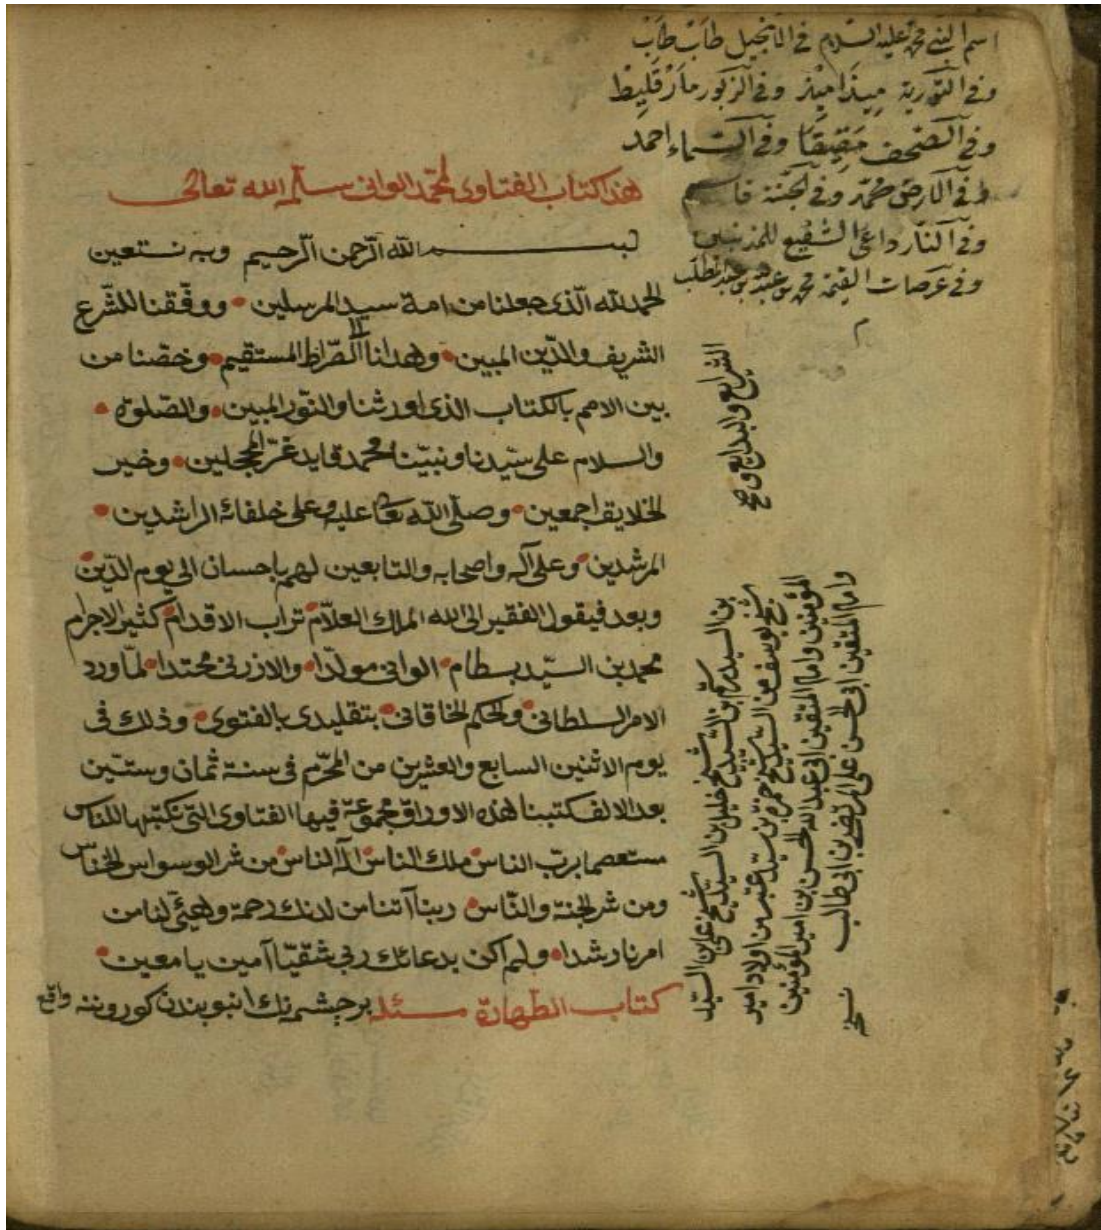 اسم النبى محمد عليه السلام فى الانجيل طاب طاب
وفى التورية ميذاميذ وفى الزبور مارقليط
وفى الصحف وفى السماء احمد
وفى الارض محمد وفى الجنة قاسم
وفى النار داعى الشفيع للمذنبين
وفى عرصات القيمة محمد بن عبد الله بن عبد المطلب
م
هذا كتاب الفتاوى لمحمد الوانى سلمه الله تعالى
بسم الله الرحمن الرحيم وبه نستعين
الحمد لله الذى جعلنا من امة سيد المرسلين • ووفقنا للشرع
الشريف والدين المبين • وهدانا الصراط المستقيم • وخصنا من
بين الامم بالكتاب الذى اورثنا والنور المبين • والصلوة •
والسلام على سيدنا ونبينا محمد قايد غر المحجلين • وخير
الخلايق اجمعين • وصلى الله تعا عليه وعلى خلفائه الراشدين •
المرشدين • وعلى آله واصحابه والتابعين لهم باحسان الى يوم الدين •
وبعد فيقول الفقير الى الله الملك العلام • تراب الاقدام • كثير الاجرام
محمد بن السيد بسطام • الوانى مولدا • والازرنى محتدا • لما ورد
الامر السلطانى • والحكم الخاقانى • بتقليدى بالفتوى • وذلك فى
يوم الاثنين السابع والعشرين من المحرم فى سنة ثمان وستين
بعد الالف كتبنا هذه الاوراق مجموعة فيها الفتاوى التى نكتبها للناس
مستعصما برب الناس • ملك الناس • اله الناس • من شر الوسواس الخناس
ومن شر الجنة والناس • ربنا آتنا من لدنك رحمة وهيئ لنا من
امرنا رشدا • ولم اكن بدعائك ربى شقيا آمين يا معين •
كتاب الطهارة مسئله بر چشمه نك انبوبندن كورونه واقع
الشرايع والبدايع وصح
بن السيد كرم بن السيد شيخ خليل بن السيد شيخ على بن السيد
شيخ يوسف من السيد شيخ حمزه بن سيد عنبر من اولاد امير
المؤمنين وامام المتقين ابى عبد الله الحسن بن امير المؤمنين
وامام المتقين ابى الحسن على المرتضى بن ابى طالب
نسخه